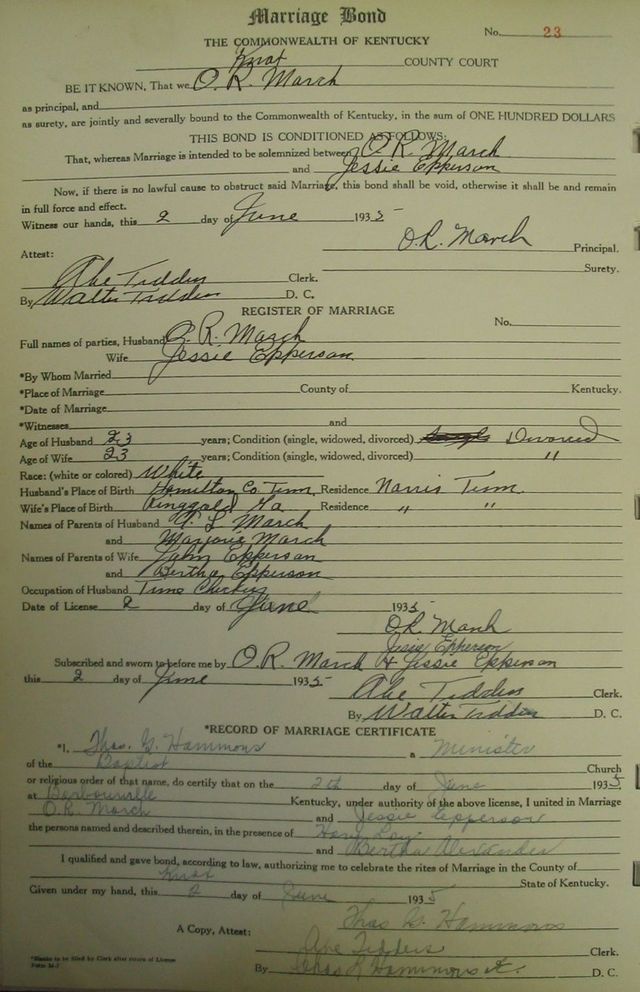 Marriage Bond
No. 23
THE COMMONWEALTH OF KENTUCKY
Knox COUNTY COURT
BE IT KNOWN, That we O. R. March
as principal, and
as surety, are jointly and severally bound to the Commonwealth of Kentucky, in the sum of ONE HUNDRED DOLLARS
THIS BOND IS CONDITIONED AS FOLLOWS:
That, whereas Marriage is intended to be solemnized between O. R. March
and Jessie Epperson
Now, if there is no lawful cause to obstruct said Marriage, this bond shall be void, otherwise it shall be and remain
in full force and effect.
Witness our hands, this 2 day of June 1935
O.R. March Principal.
Attest: Surety.
Abe Tidden Clerk.
By Walter Tidden D. C.
REGISTER OF MARRIAGE
No.
Full names of parties, Husband O. R. March
Wife Jessie Epperson
*By Whom Married
*Place of Marriage County of Kentucky.
*Date of Marriage
*Witnesses and
Age of Husband 23 years; Condition (single, widowed, divorced) Single Divorced
Age of Wife 23 years; Condition (single, widowed, divorced) "
Race: (white or colored) White
Husband's Place of Birth Hamilton Co. Tenn, Residence Norris Tenn.
Wife's Place of Birth Ringgold Ga Residence " "
Names of Parents of Husband L March
and Marjorie March
Names of Parents of Wife John Epperson
and Bertha Epperson
Occupation of Husband Time Checker
Date of License 2 day of June 1935
O.R. March
Jessie Epperson
Subscribed and sworn to before me by O.R. March & Jessie Epperson
this 2 day of June 1935
Abe Tidden Clerk.
By Walter Tidden D. C.
*RECORD OF MARRIAGE CERTIFICATE
*I, Thos. G. Hammons a Minister
of the Baptist Church
or religious order of that name, do certify that on the 2th day of June 1935
at Barbourville Kentucky, under authority of the above license, I united in Marriage
O.R. March and Jessie Epperson
the persons named and described therein, in the presence of
and Bertha Alexander
I qualified and gave bond, according to law, authorizing me to celebrate the rites of Marriage in the County of
Knox State of Kentucky.
Given under my hand, this 2 day of June 1935
Thos G. Hammons
A Copy, Attest: Abe Tidders Clerk.
By Hammons D. C.
*Blanks to be filled by Clerk after return of License
Form M-7